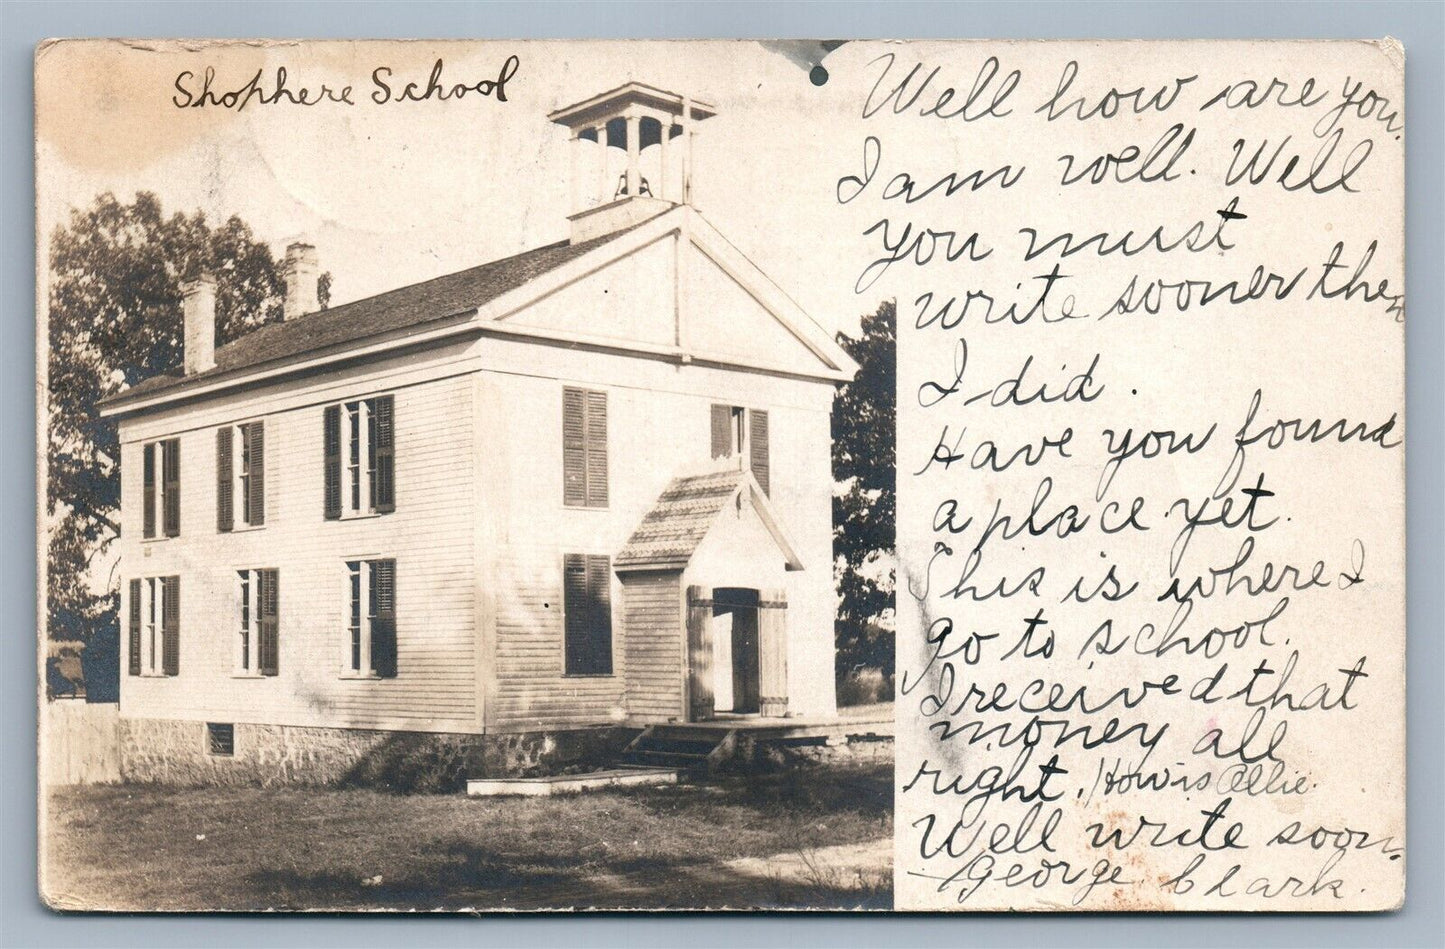 Shophere School
Well how are you.
I am well. Well
you must
write sooner then
I did.
Have you found
a place yet.
This is where I
go to school.
I received that
money all
right. How is Ollie.
Well write soon.
George Clark.